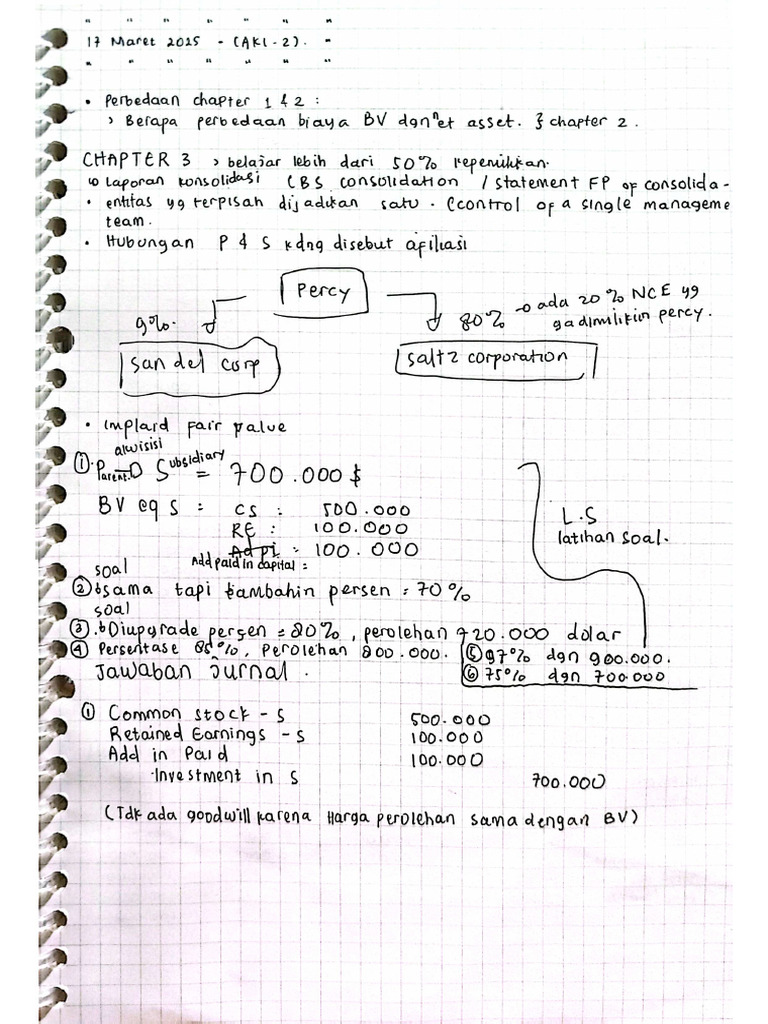 " " " " " " "
17 Maret 2025 - (AKL-2). "
" " " " " " "
• Perbedaan chapter 1 & 2 :
> Berapa perbedaan biaya BV dgn net asset. } chapter 2.
CHAPTER 3 > belajar lebih dari 50% kepemilikan.
↳ Laporan konsolidasi (BS consolidation / statement FP of consolida-
• entitas yg terpisah dijadikan satu. (control of a single manageme
team.
• Hubungan P & S kdng disebut afiliasi
Percy
9%.
80% → ada 20% NCE yg
gadimilikin percy.
san del corp
saltz corporation
• Implard fair value
akuisisi
①. Parent → Subsidiary = 700.000 $
BV eq S : CS : 500.000
RE : 100.000
Ad pi : 100.000
Add paid in capital :
L.S
latihan soal.
soal
② ↳ sama tapi tambahin persen = 70%
soal
③ .↳ Diupgrade persen = 80%, perolehan 720.000 dolar
④ Persentase 85%, perolehan 800.000.
⑤ 97% dgn 900.000.
⑥ 75% dgn 700.000
Jawaban Jurnal.
① Common stock - S 500.000
Retained Earnings - S 100.000
Add in Paid 100.000
Investment in S 700.000
(Tdk ada goodwill karena Harga perolehan sama dengan BV)